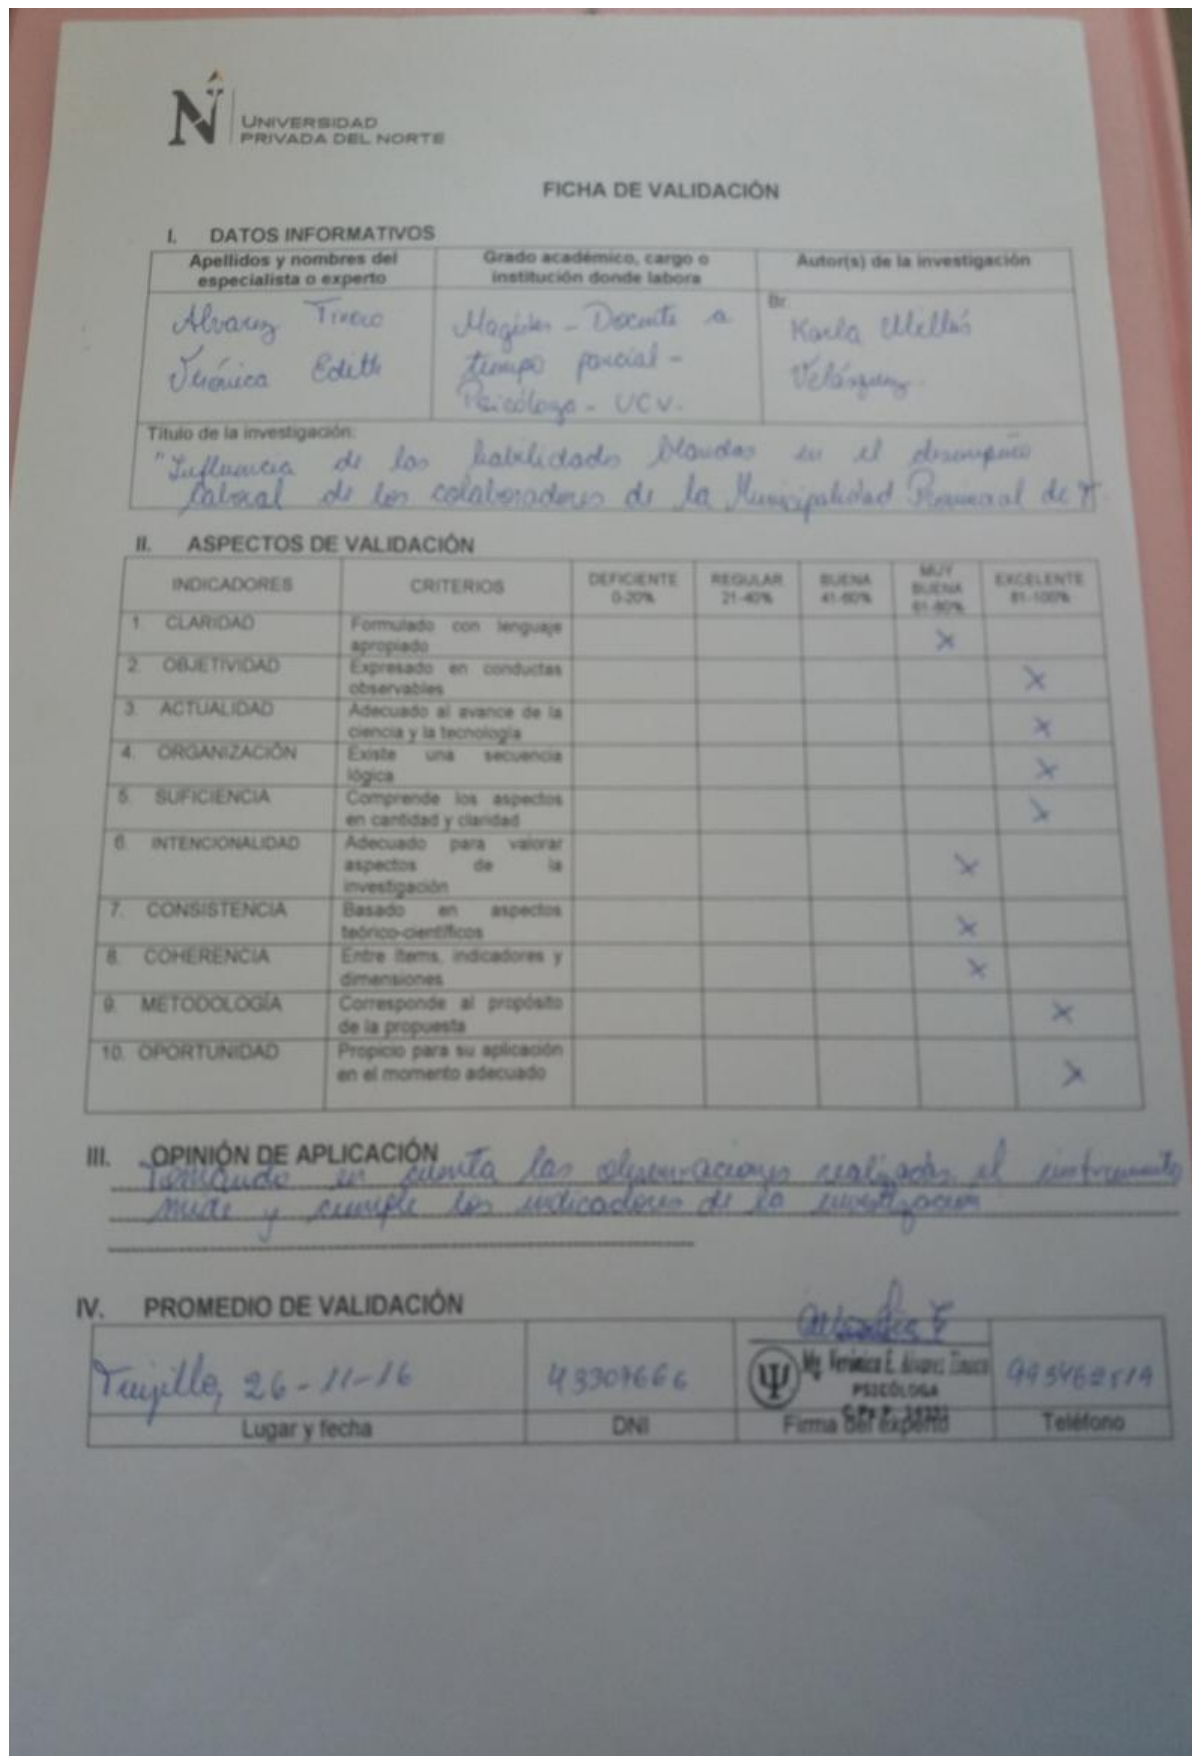 UNIVERSIDAD
PRIVADA DEL NORTE
FICHA DE VALIDACIÓN
I. DATOS INFORMATIVOS
Apellidos y nombres del especialista o experto
Grado académico, cargo o institución donde labora
Autor(s) de la investigación
Alvarez
Verónica Edith
Magister - Docente a
tiempo parcial -
Psicóloga - UCV.
Br.
Karla
Velásquez
Título de la investigación:
"Influencia de las habilidades blandas en el desempeño
laboral de los colaboradores de la Municipalidad Provincial de T.
II. ASPECTOS DE VALIDACIÓN
INDICADORES CRITERIOS DEFICIENTE 0-20% REGULAR 21-40% BUENA 41-60% MUY BUENA 61-80% EXCELENTE 81-100%
1. CLARIDAD Formulado con lenguaje apropiado X
2. OBJETIVIDAD Expresado en conductas observables X
3. ACTUALIDAD Adecuado al avance de la ciencia y la tecnología X
4. ORGANIZACIÓN Existe una secuencia lógica X
5. SUFICIENCIA Comprende los aspectos en cantidad y claridad X
6. INTENCIONALIDAD Adecuado para valorar aspectos de la investigación X
7. CONSISTENCIA Basado en aspectos teórico-científicos X
8. COHERENCIA Entre ítems, indicadores y dimensiones X
9. METODOLOGÍA Corresponde al propósito de la propuesta X
10. OPORTUNIDAD Propicio para su aplicación en el momento adecuado X
III. OPINIÓN DE APLICACIÓN
Tomando en cuenta las observaciones realizadas el instrumento
mide y cumple los indicadores de la investigación
IV. PROMEDIO DE VALIDACIÓN
Trujillo, 26-11-16
Mg. Verónica E. Alvarez
PSICÓLOGA
Lugar y fecha DNI Firma del experto Teléfono